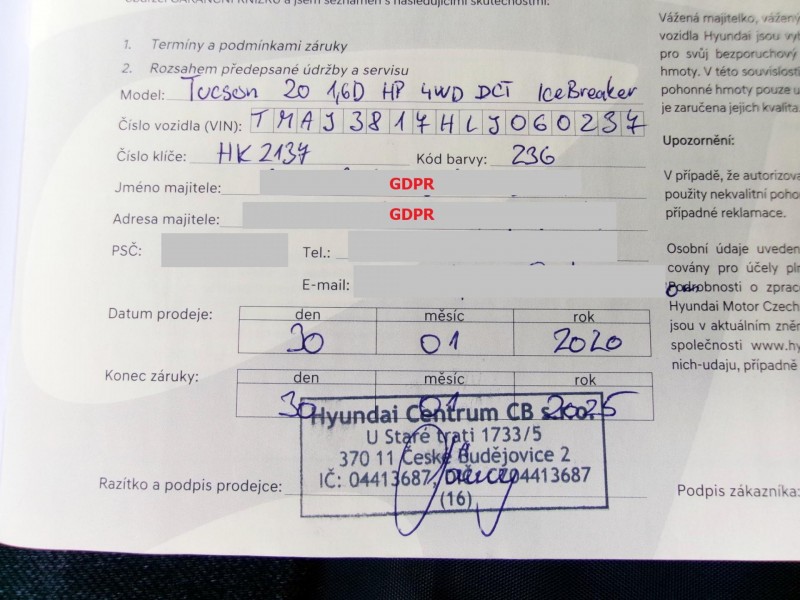 a jsem seznámen s následujícími skutečnostmi:
1. Termíny a podmínkami záruky
2. Rozsahem předepsané údržby a servisu
Model: Tucson 20 1,6D HP 4WD DCT IceBreaker
Číslo vozidla (VIN): TMAJ3817HLJ060237
Číslo klíče: HK2137 Kód barvy: 236
Jméno majitele: GDPR
Adresa majitele: GDPR
PSČ: Tel.:
E-mail:
Datum prodeje: den měsíc rok
30 01 2020
Konec záruky: den měsíc rok
30 01 2025
Hyundai Centrum CB s.r.o.
U Staré trati 1733/5
370 11 České Budějovice 2
IČ: 04413687, 04413687
(16)
Razítko a podpis prodejce:
Podpis zákazníka:
Vážená majitelko, vážený
vozidla Hyundai jsou
pro svůj bezporuchový
hmoty. V této souvislosti
pohonné hmoty pouze u
je zaručena jejich kvalita.
Upozornění:
V případě, že
použity nekvalitní
případné reklamace.
Osobní údaje
covány pro účely
Podrobnosti o
Hyundai Motor Czech
jsou v aktuálním
společnosti
nich-udaju, případně